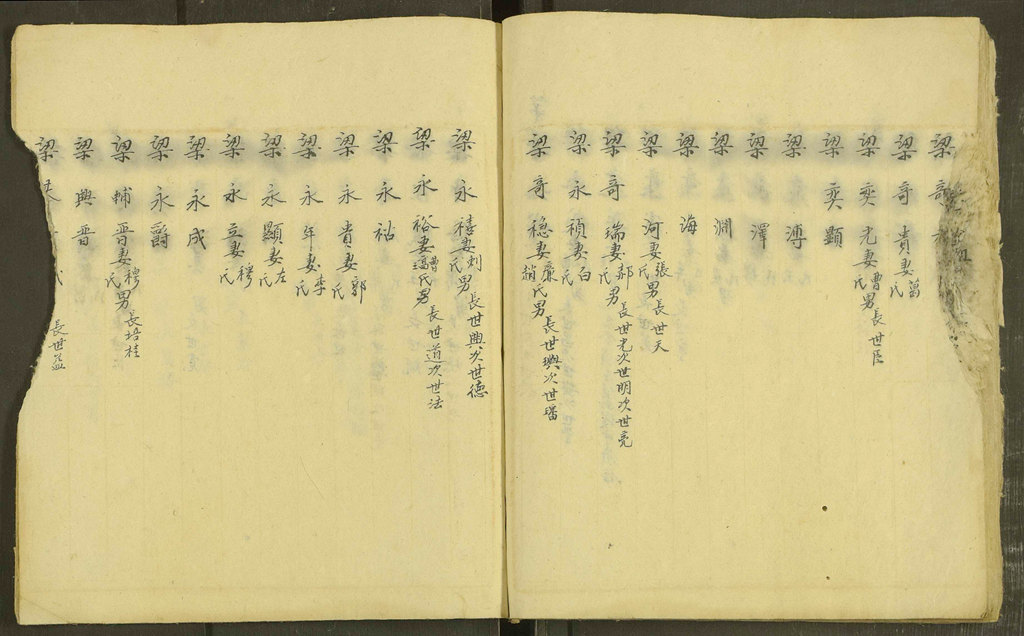 梁奇
梁奇貴妻曾氏
梁奕光妻曹氏男長世臣
梁奕顯
梁溥
梁澤
梁淵
梁海
梁河妻張氏男長世天
梁奇瑞妻郝氏男長世光次世明次世亮
梁永禎妻白氏
梁奇穩妻廉趙氏男長世璵次世璠
梁永禧妻刘氏男長世興次世德
梁永裕妻曹氏男長世道次世法
梁永祜
梁永貴妻郭氏
梁永年妻李氏
梁永顯妻左氏
梁永立妻穆氏
梁永成
梁永爵
梁輔晋妻穆氏男長培桂
梁興晋
梁 長世益